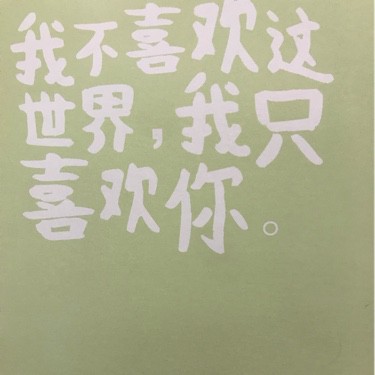 我不喜欢这
世界，我只
喜欢你。